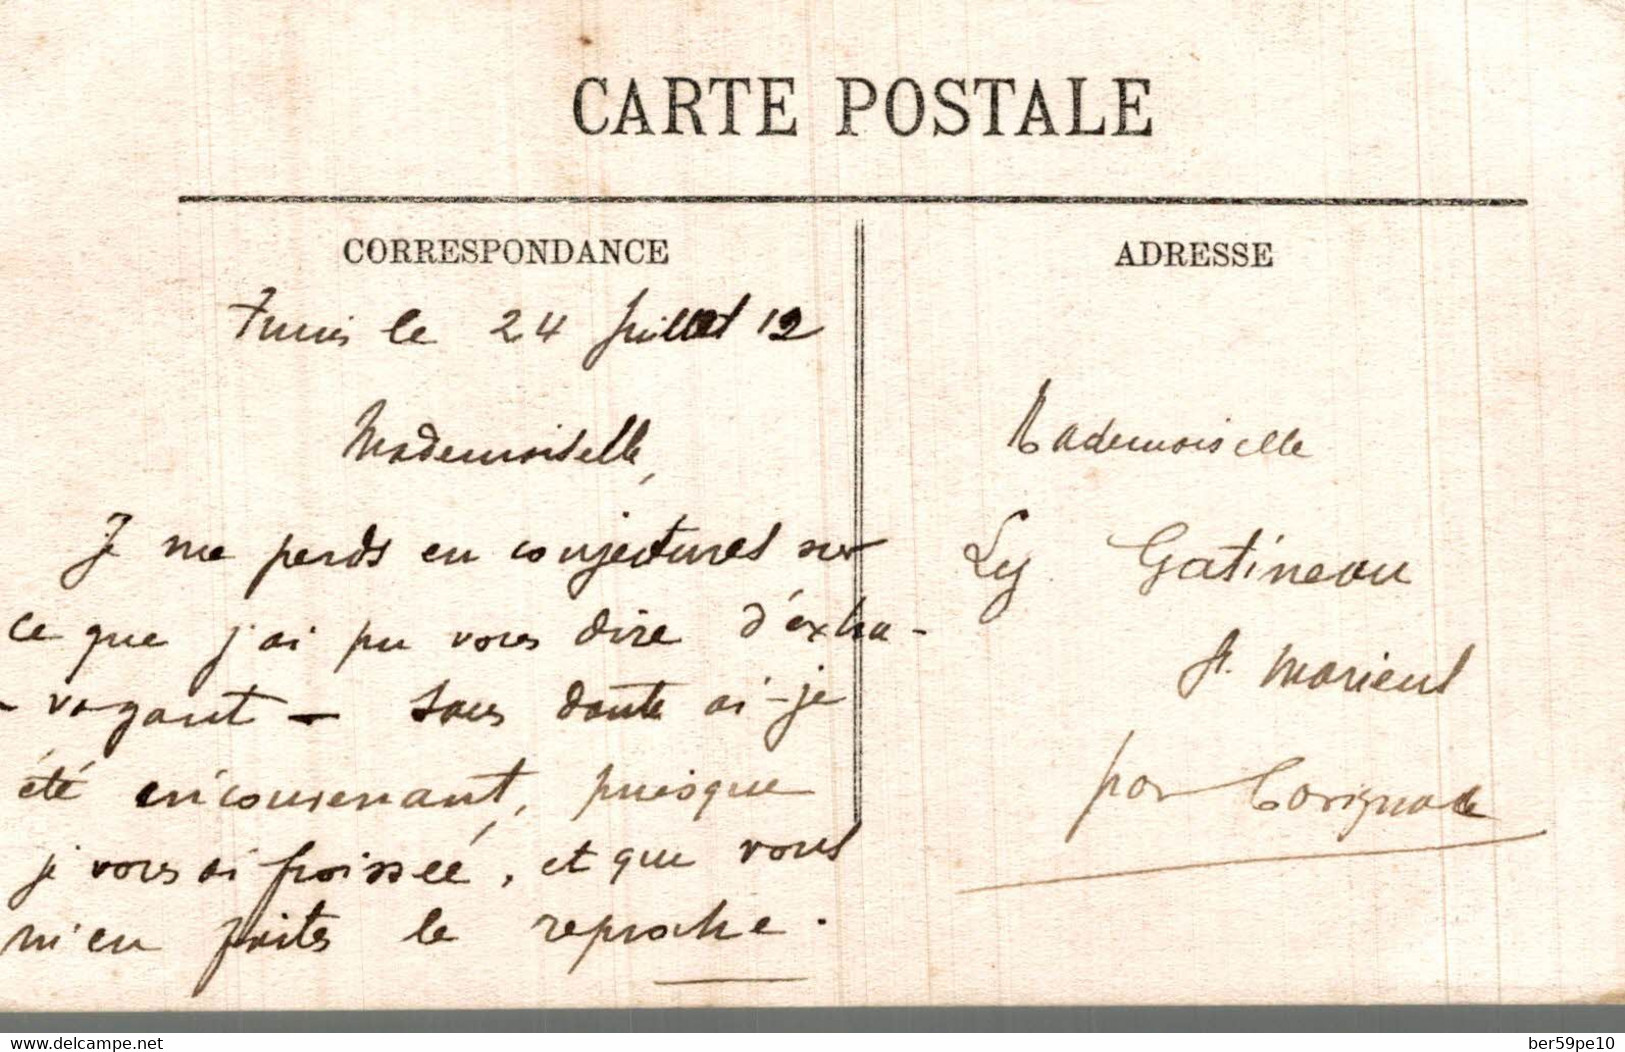 CARTE POSTALE
CORRESPONDANCE
Tunis le 24 Juillet 12
Mademoiselle,
Je me perds en conjectures sur
ce que j'ai pu vous dire d'extra-
- vagant - Sans doute ai-je
été inconvenant, puisque
je vous ai froissée, et que vous
m'en faites le reproche.
ADRESSE
Mademoiselle
Ly Gatineau
St. Mariens
par Cavignac
www.delcampe.net
ber59pe10